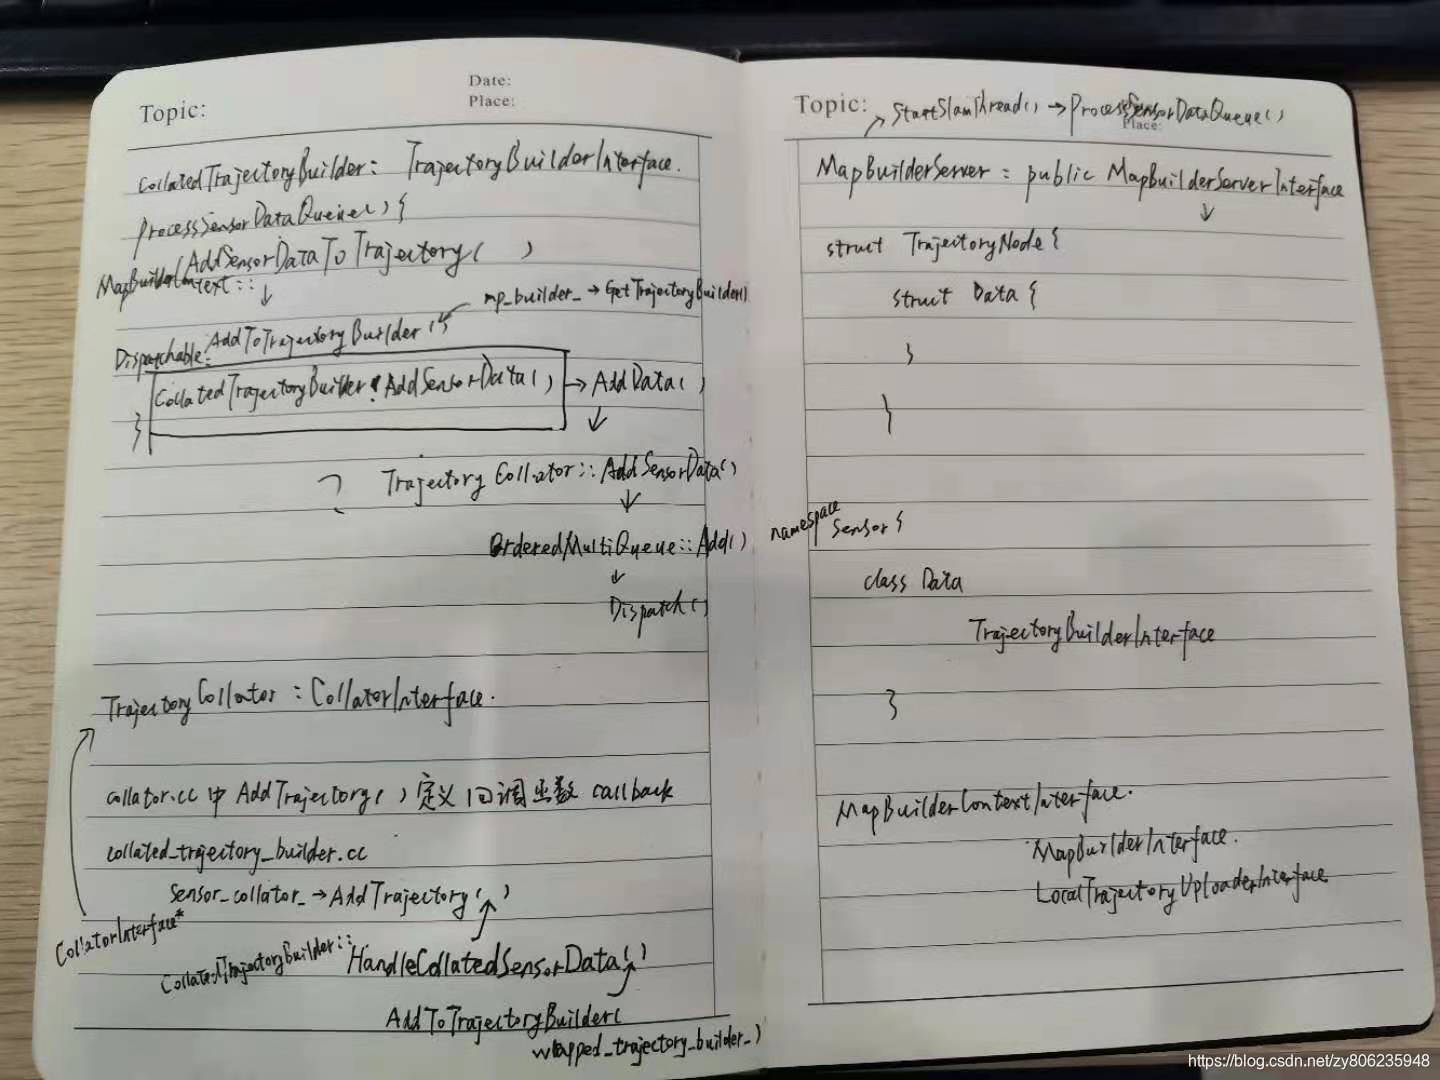 Date:
Place:
Topic:
CollatedTrajectoryBuilder: TrajectoryBuilderInterface.
ProcessSensorDataQueue() {
AddSensorDataToTrajectory( )
MapBuilderContext::
↓
mp_builder_→GetTrajectoryBuilder()
Dispatchable::AddToTrajectoryBuilder()
CollatedTrajectoryBuilder::AddSensorData() → AddData()
}
↓
Trajectory Collator::AddSensorData()
↓
OrderedMultiQueue::Add()
↓
Dispatch()
TrajectoryCollator : CollatorInterface.
collator.cc 中 AddTrajectory( ) 定义回调函数 callback
collated_trajectory_builder.cc
sensor_collator_→AddTrajectory( )
CollatorInterface*
CollatedTrajectoryBuilder::HandleCollatedSensorData( )
AddToTrajectoryBuilder(
wrapped_trajectory_builder_)
Topic:
Place:
StartSlamThread() → ProcessSensorDataQueue()
MapBuilderServer : public MapBuilderServerInterface
↓
struct TrajectoryNode {
struct Data {
}
}
namespace sensor {
class Data
TrajectoryBuilderInterface
}
MapBuilderContextInterface.
MapBuilderInterface.
LocalTrajectoryUploaderInterface
https://blog.csdn.net/zy806235948